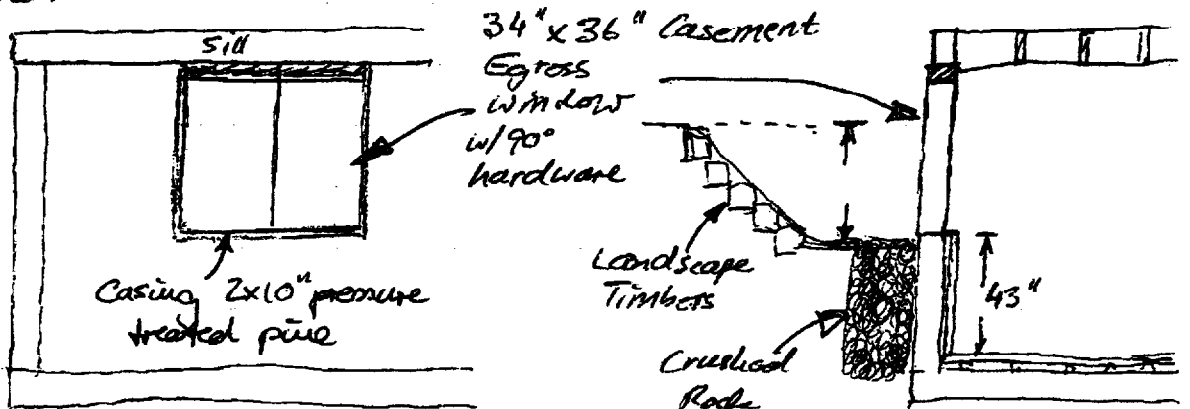 Sill
34" x 36" Casement
Egress
window
w/90°
hardware
Casing 2x10" pressure
treated pine
Landscape
Timbers
Crushed
Rock
43"